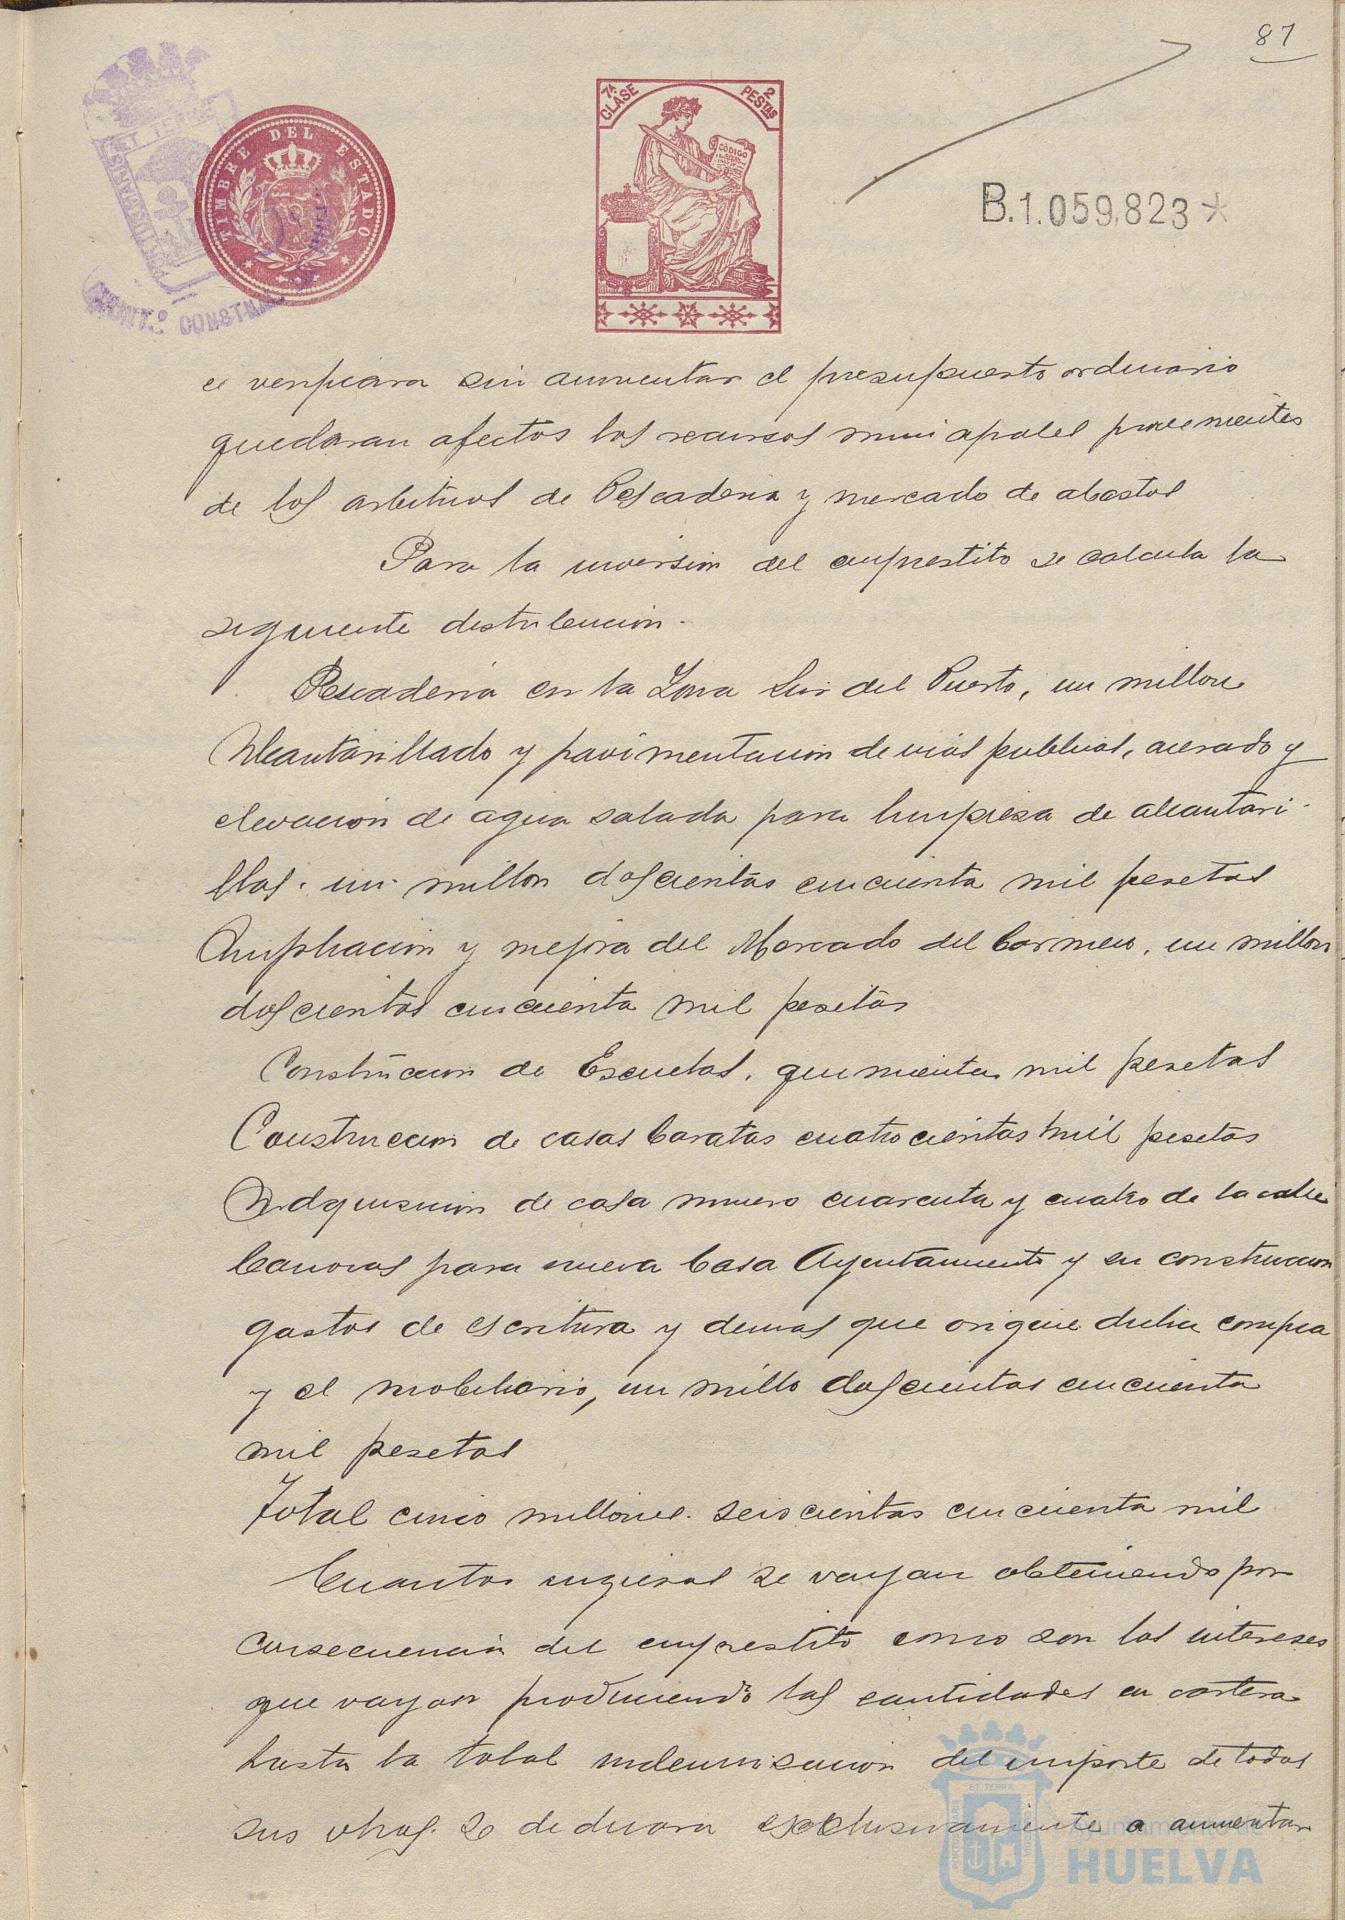 81
TIMBRE DEL ESTADO
7ª CLASE
2 PESTAS
CÓDIGO
B.1.059,823*
CONSTNAL DE
se verificara sin aumentar el presupuesto ordinario
quedaran afectos los recursos municipales provenientes
de los arbitrios de Pescaderia y mercado de abastos
Para la inversion del emprestito se calcula la
siguiente distribucion.
Pescaderia en la Zona Sur del Puerto, un millon
Alcantarillado y pavimentacion de vias publicas, acerado y
elevación de agua salada para limpiesa de alcantari-
llas. un millon doscientas cincuenta mil pesetas
Ampliacion y mejora del Mercado del Carmen, un millon
doscientas cincuenta mil pesetas
Construcion de Escuelas, quinientas mil pesetas
Construccion de casas baratas cuatrocientas mil pesetas
Adquisicion de casa numero cuarenta y cuatro de la calle
Canovas para nueva Casa Ayuntamiento y su construccion
gastos de escritura y demas que origine dicha compra
y el mobiliario, un millo doscientas cincuenta
mil pesetas
Total cinco millones. seiscientas cincuenta mil
Cuantos ingresos se vayan obteniendo por
consecuencia del emprestito como son los intereses
que vayan produciendo las cantidades en cartera
hasta la total indemnisacion del importe de todas
sus obras. se dedicara exclusivamente a aumentar
Ayuntamiento de
HUELVA